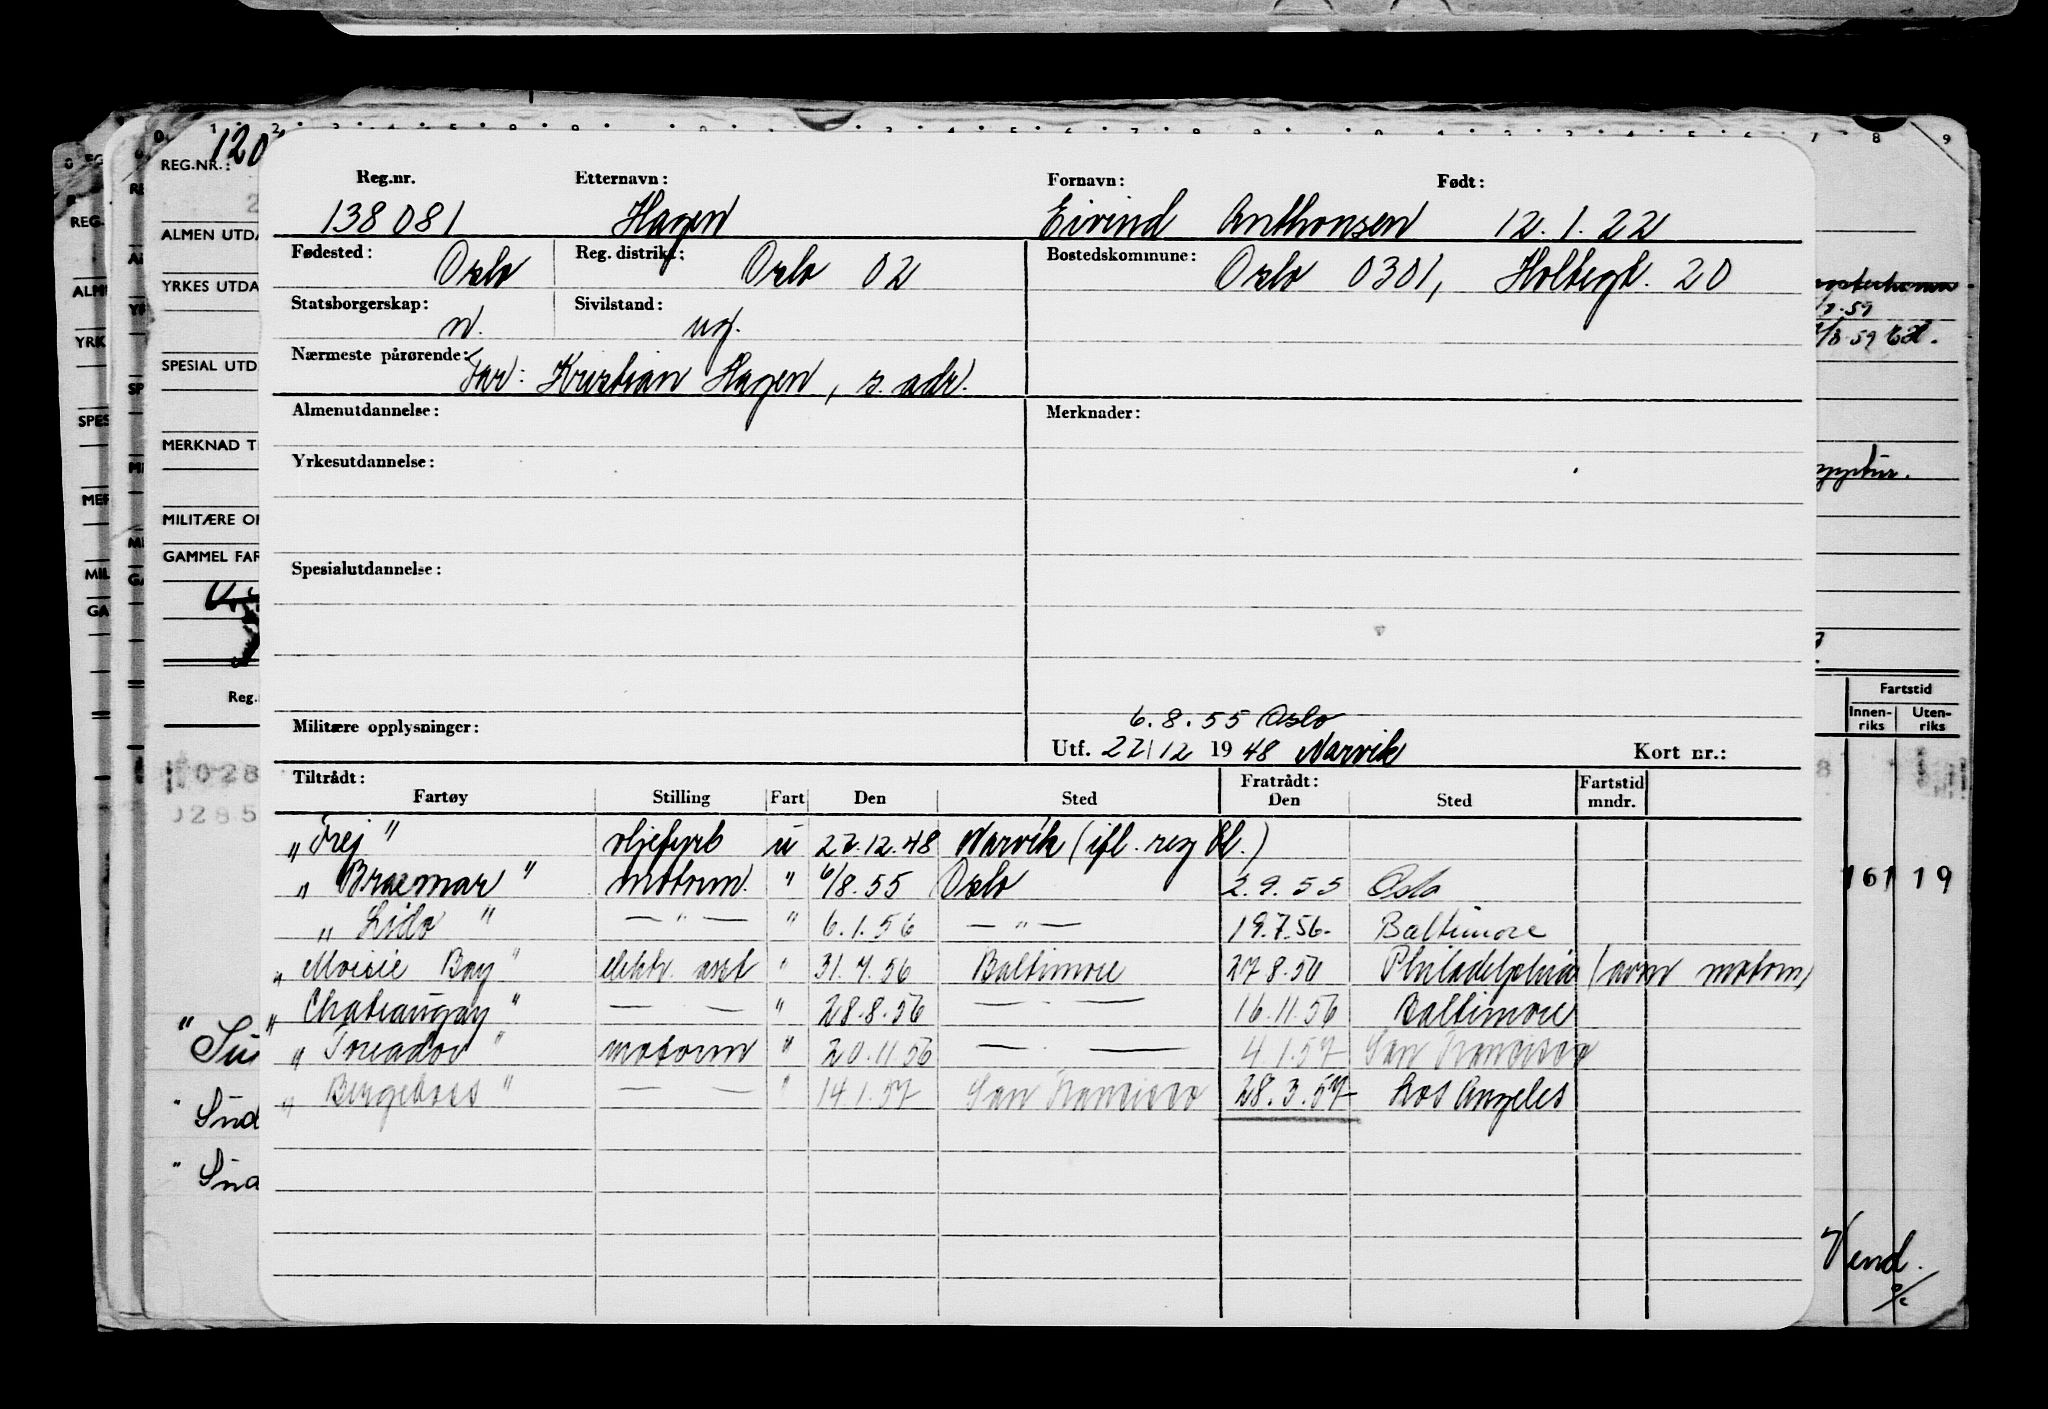 120
REG.NR.:
ALMEN UTDA
YRKES UTDA
SPESIAL UTD
MERKNAD T
MILITÆRE O
GAMMEL FAR
Reg.nr. Etternavn: Fornavn: Født:
138081 Hagen Eivind Anthonsen 12.1.22
Fødested: Oslo Reg. distrikt: Oslo 02 Bostedskommune: Oslo 0301, Holbegt. 20
Statsborgerskap: n. Sivilstand: ug.
Nærmeste pårørende: Far: Kristian Hagen, s. adr.
Almenutdannelse: Merknader:
Yrkesutdannelse:
Spesialutdannelse:
6.8.55 Oslo
Militære opplysninger: Utf. 22/12 1948 Narvik Kort nr.:
Tiltrådt: Fratrådt: Fartstid
Fartøy Stilling Fart Den Sted Den Sted mndr.
"Frej" oljefyrb u 22.12.48 Narvik (ifl. reg bl.)
"Braemar" motorm. " 6/8.55 Oslo 2.9.55 Oslo
"Lido" — " — " 6.1.56 — " — 19.7.56- Baltimore
"Moisie Bay" elektr. asst " 31.7.56 Baltimore 27.8.56 Philadelphia (avm motorm)
"Chateaugay" — — " 28.8.56 — — 16.11.56 Baltimore
"Toreador" motorm " 20.11.56 — — 4.1.57 San Francisco
"Bergeboss" — — " 14.1.57 San Francisco 28.3.57 Los Angeles
Fartstid
Innen-riks Uten-riks
161 19
"Sud
"Sud
Vend.